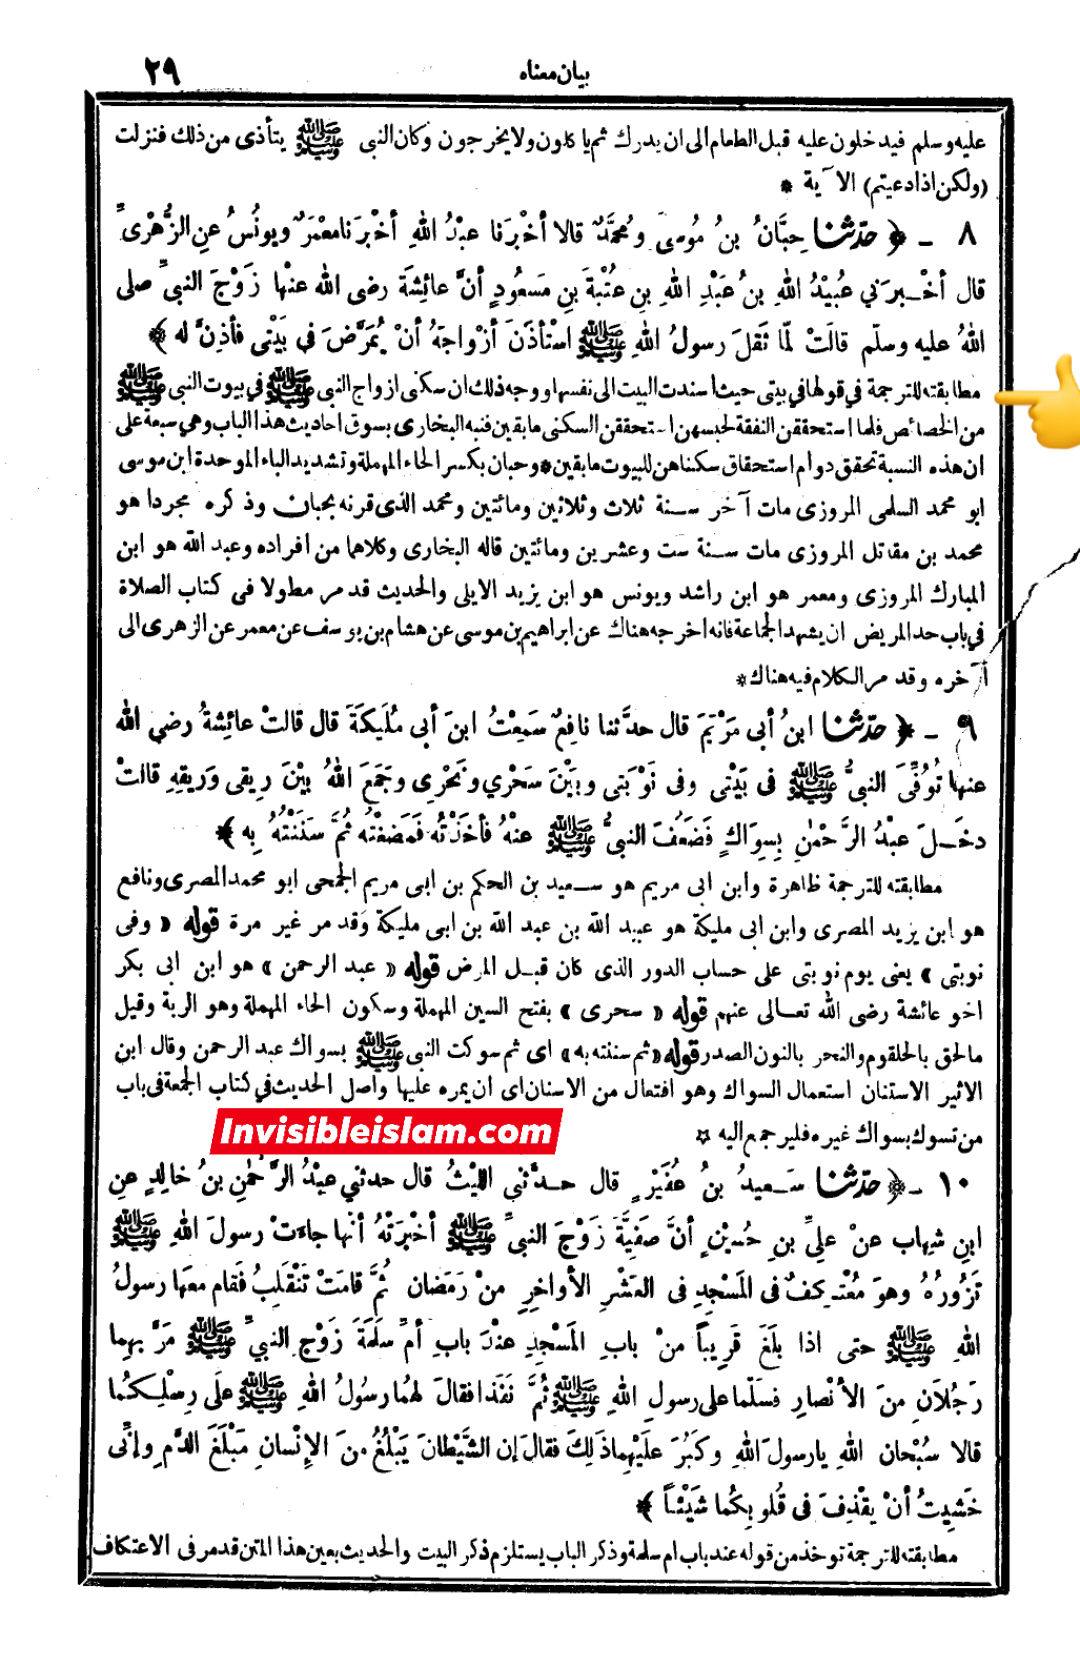 ٢٩
بيان معناه
عليه وسلم فيدخلون عليه قبل الطعام الى ان يدرك ثم يا كلون ولا يخرجون وكان النبي ﷺ يتأذى من ذلك فنزلت
(ولكن اذا دعيتم) الآية *
٨ ـ ﴿ حدثنا حِبَّانُ بنُ مُوسَى ومُحمَّدٌ قالا أخْبرَنا عبْدُ اللهِ أخْبرَنا معْمَرٌ ويونُسُ عنِ الزُّهْرىِّ
قال أخْـبرَني عُبيْدُ اللهِ بنُ عَبْدِ اللهِ بنِ عُتْبةَ بنِ مَسعُودٍ أنَّ عائِشةَ رضى الله عنْها زَوْجَ النبيِّ صلى
اللهُ عليه وسلّم قالَتْ لمّا ثَقلَ رسولُ اللهِ ﷺ اسْتأذَنَ أزْواجَهُ أنْ يُمَرَّضَ في بَيْتِى فأذِنَّ له ﴾
مطابقته للترجمة في قولها في بيتى حيث اسندت البيت الى نفسها ووجه ذلك ان سكنى ازواج النبى ﷺ في بيوت النبى ﷺ
من الخصائص فلما استحققن النفقة لحبسهن استحققن السكنى ما بقين فنبه البخارى بسوق احاديث هذا الباب وهي سبعة على
ان هذه النسبة تحقق دوام استحقاق سكناهن للبيوت ما بقين * وحبان بكسر الحاء المهملة وتشديد الباء الموحدة ابن موسى
ابو محمد السلمى المروزى مات آخر سـنة ثلاث وثلاثين ومائتين ومحمد الذى قرنه بحبان وذكره مجردا هو
محمد بن مقاتل المروزى مات سـنة ست وعشرين ومائتين قاله البخارى وكلاهما من افراده وعبد الله هو ابن
المبارك المروزى ومعمر هو ابن راشد ويونس هو ابن يزيد الايلى والحديث قد مر مطولا فى كتاب الصلاة
في باب حد المريض ان يشهد الجماعة فانه اخرجه هناك عن ابراهيم بن موسى عن هشام بن يوسف عن معمر عن الزهرى الى
آخره وقد مر الكلام فيه هناك *
٩ ـ ﴿ حدثنا ابنُ أبى مَرْيَمَ قال حدَّثنا نافِعٌ سَمِعْتُ ابنَ أبى مُلَيكَةَ قال قالتْ عائِشةُ رضي الله
عنها تُوُفِّىَ النبيُّ ﷺ فى بَيْتى وفى نَوْبَتى وبيْنَ سَحْري ونَحْرى وجَمَعَ اللهُ بيْنَ ريقى وَريقِهِ قالتْ
دخَـلَ عبْدُ الرَّحْمٰنِ بِسِوَاكٍ فَضَعُفَ النبيُّ ﷺ عنْهُ فأخَذْتُه فَمَضَغْتُه ثُمَّ سَنَنْتُهُ بِه ﴾
مطابقته للترجمة ظاهرة وابن ابى مريم هو سـعيد بن الحكم بن ابى مريم الجمحى ابو محمد المصرى ونافع
هو ابن يزيد المصرى وابن ابى مليكة هو عبيد الله بن عبد الله بن ابى مليكة وقد مر غير مرة قوله « وفى
نوبتى » يعنى يوم نوبتى على حساب الدور الذى كان قبـل المرض قوله « عبد الرحمن » هو ابن ابى بكر
اخو عائشة رضى الله تعـالى عنهم قوله « سحرى » بفتح السين المهملة وسكون الحاء المهملة وهو الرية وقيل
مالحق بالحلقوم والنحر بالنون الصدر قوله «ثم سننته به» اى ثم سوكت النبى ﷺ بسواك عبد الرحمن وقال ابن
الاثير الاستنان استعمال السواك وهو افتعال من الاسنان اى ان يمره عليها واصل الحديث في كتاب الجمعة فى باب
Invisibleislam.com
من تسوك بسواك غيره فليرجع اليه
١٠ ـ ﴿ حدثنا سَـعيدُ بنُ عُفَيْرٍ قال حـدَّثنى الليْثُ قال حدثني عبْدُ الرَّحْمٰنِ بنُ خالِدٍ عنِ
ابنِ شِهاب عنْ علىِّ بنِ حُسيْنٍ أنَّ صَفِيَّةَ زَوْجَ النبيِّ ﷺ أخْبرَتْهُ أنَّها جاءَتْ رسولَ اللهِ ﷺ
تَزُورُهُ وهوَ مُعْتـكِفٌ فى المَسْجِدِ فى العَشْرِ الأواخِرِ منْ رمَضان ثُمَّ قامَتْ تنْقَلِبُ فَقام معَها رسولُ
اللهِ ﷺ حتى اذا بلَغَ قَرِيباً منْ بابِ المَسْجِدِ عنْدَ بابِ أُمِّ سلَمَةَ زَوْجِ النبيِّ ﷺ مَرَّ بهِما
رَجُلاَنِ منَ الأنْصارِ فسَلَّما على رسولِ اللهِ ﷺ ثُمَّ نَفَذا فقالَ لهُما رسُولُ اللهِ ﷺ علَى رِسْلِـكُما
قالا سُبْحان اللهِ يا رسولَ اللهِ وكَبُرَ علَيْهِما ذَلِكَ فقال إن الشَّيْطانَ يَبْلُغُ منَ الإنْسانِ مَبْلَغَ الدَّمِ وإنِّى
خَشِيتُ أنْ يقْذِفَ فى قُلُوبِكُما شَيْئاً ﴾
مطابقته للترجمة توخذ من قوله عند باب ام سلمة وذكر الباب يستلزم ذكر البيت والحديث بعين هذا المتن قد مر فى الاعتكاف